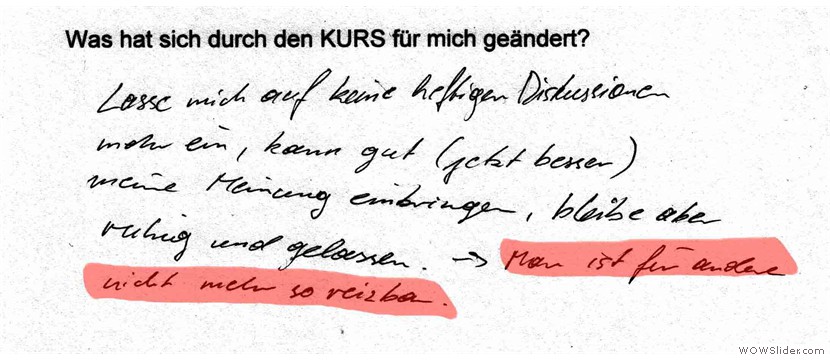 Was hat sich durch den KURS für mich geändert?
Lasse mich auf keine heftigen Diskussionen
mehr ein, kann gut (jetzt besser)
meine Meinung einbringen, bleibe aber
ruhig und gelassen. → Man ist für andere
nicht mehr so reizbar.
WOWSlider.com